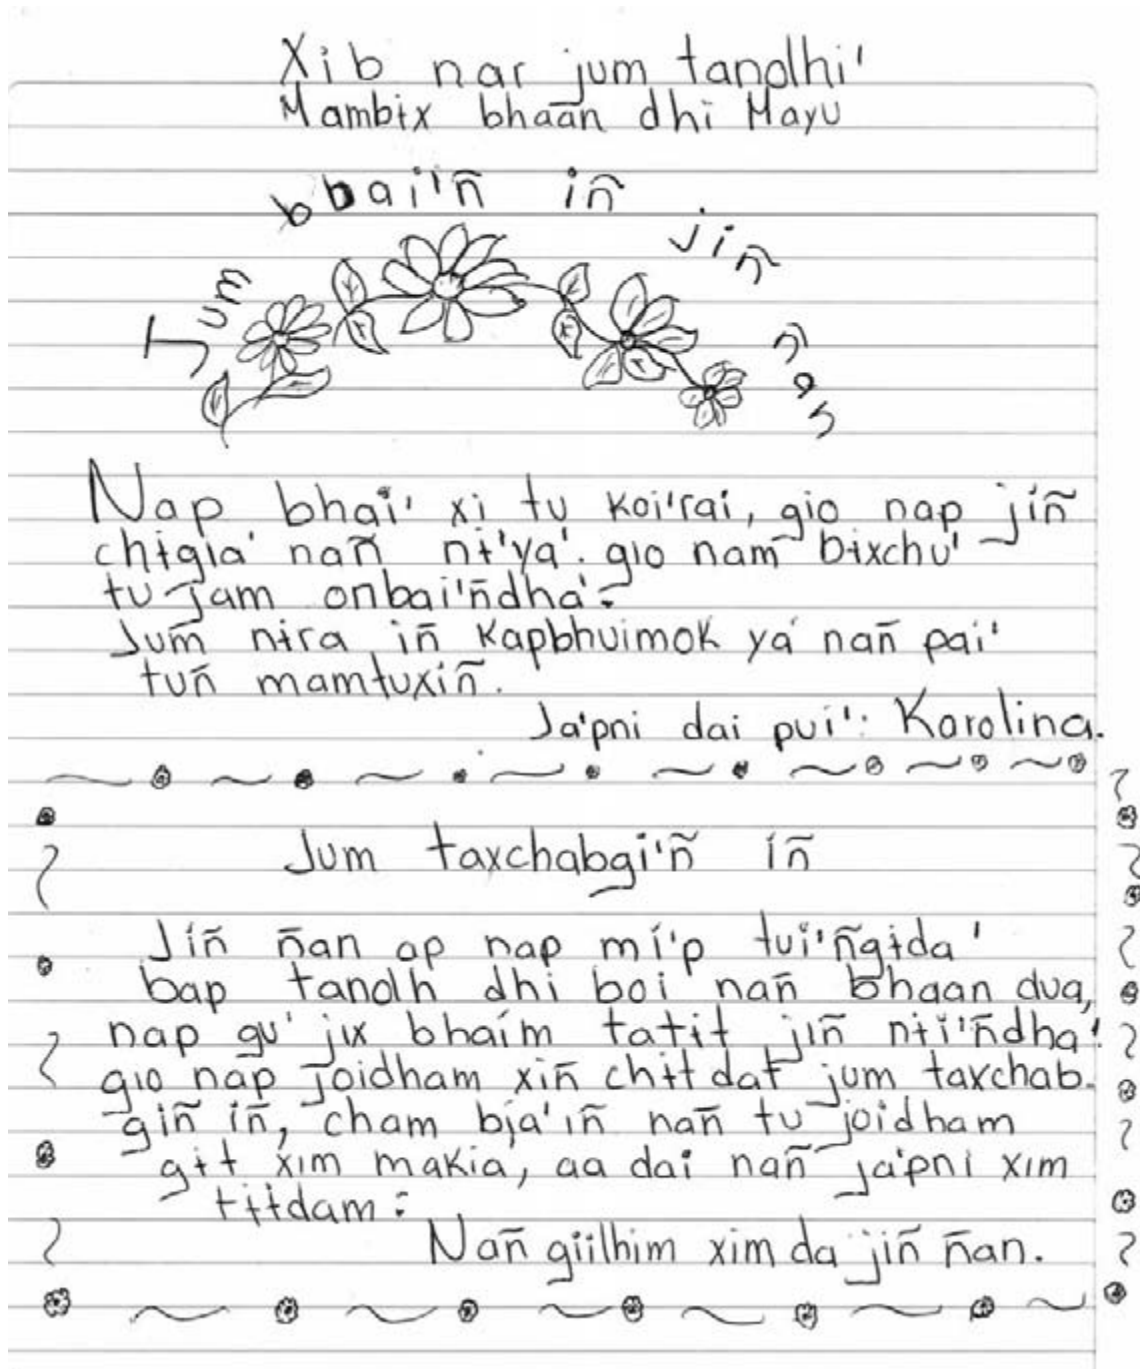 Xib nar jum tanolhi'
Mambɨx bhaan dhi Mayu
Jum bbai'ñ iñ jiñ ñan
Nap bhai' xi tu koi'rai, gio nap jiñ
chɨgia' nañ nɨ'ya'. gio nam bɨxchu'
tu jam onbai'ñdha'.
Jum nɨra iñ kapbhuimok ya' nañ pai'
tuñ mamtuxiñ.
Ja'pni dai pui': Karolina.
Jum taxchabgi'ñ iñ
Jiñ ñan ap nap mi'p tui'ñgɨda'
bap tanolh dhi boi nañ bhaan dua,
nap gu' jix bhaim tatɨt jiñ nɨi'ñdha'
gio nap joidham xiñ chɨtdat jum taxchab.
giñ iñ, cham bia'iñ nañ tu joidham
gɨt xim makia', aa dai nañ ja'pni xim
tɨtdam:
Nañ giilhim xim da jiñ ñan.